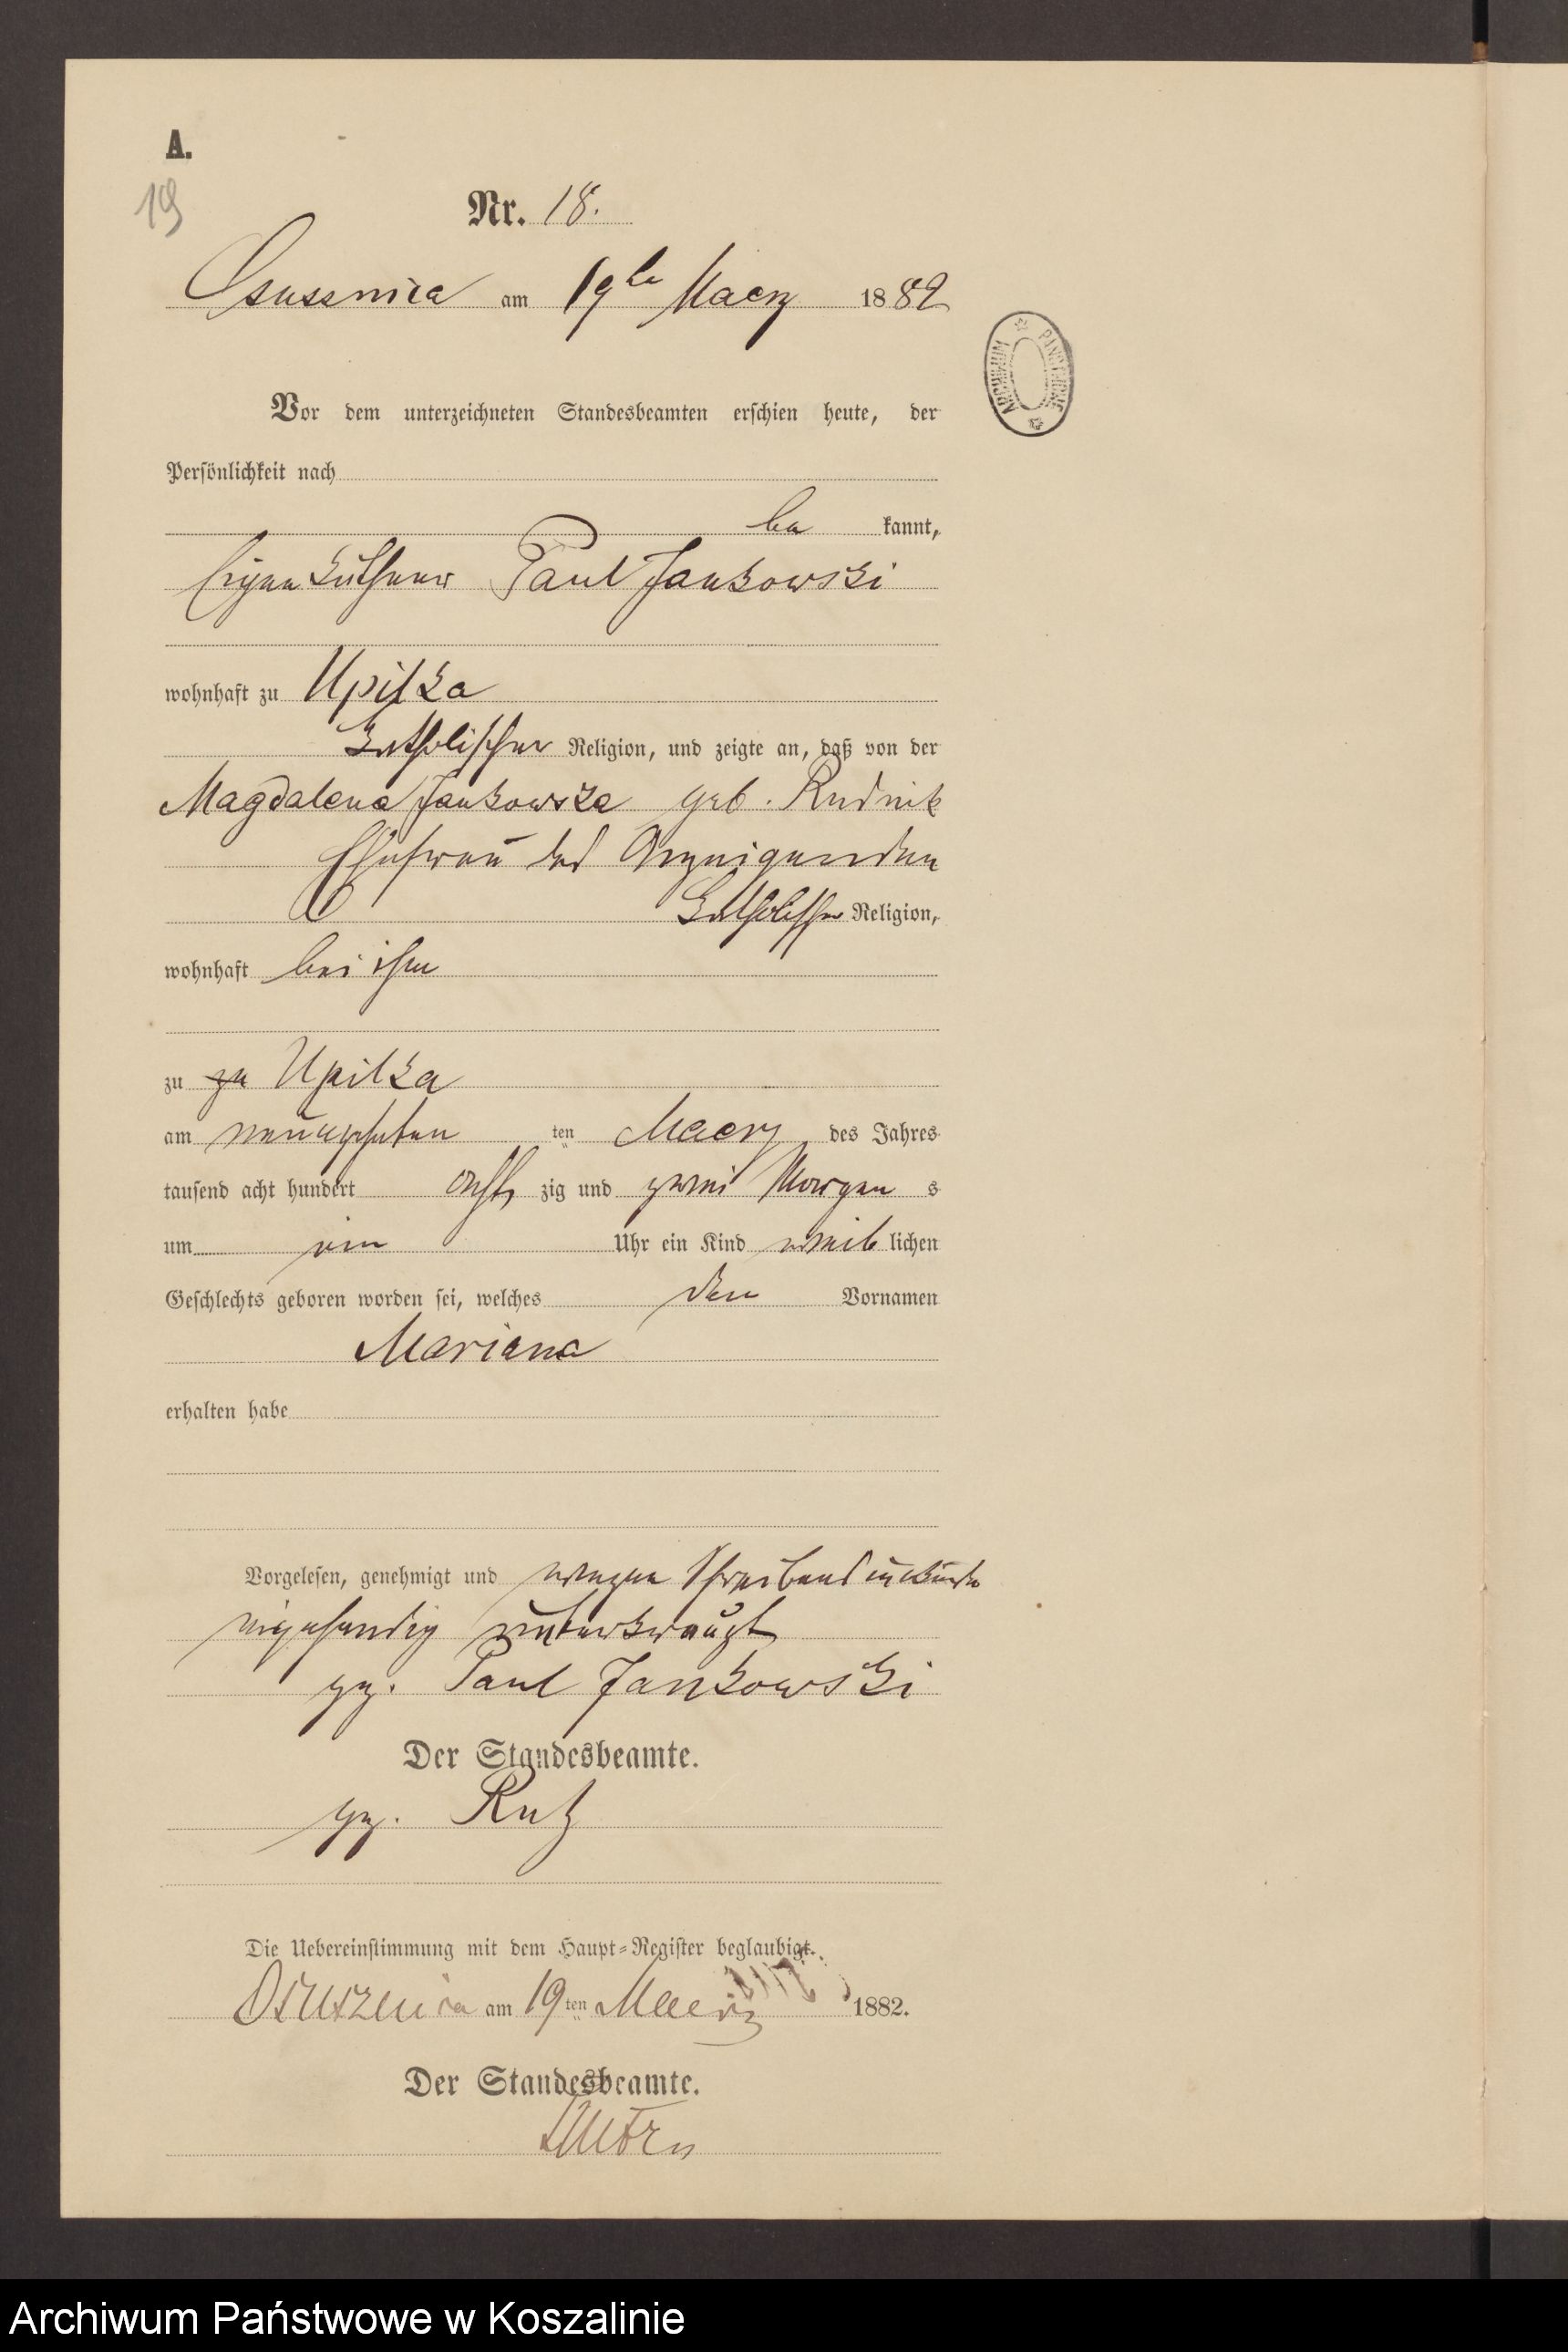 A.
19
Nr. 18.
Ossusznica am 19te Maerz 1882
Vor dem unterzeichneten Standesbeamten erschien heute, der
Persönlichkeit nach
be kannt,
Eigenkäthner Paul Jankowski
wohnhaft zu Upilka
katholischer Religion, und zeigte an, daß von der
Magdalena Jankowska geb. Rudnik
Ehefrau des Anzeigenden
katholischer Religion,
wohnhaft bei ihm
zu zu Upilka
am neunzehnten ten Maerz des Jahres
tausend acht hundert acht zig und zwei Morgen s
um ein Uhr ein Kind weib lichen
Geschlechts geboren worden sei, welches den Vornamen
Mariana
erhalten habe
Vorgelesen, genehmigt und wegen Schreibensunkunde
eigenhändig unterkreuzt
gez. Paul Jankowski
Der Standesbeamte.
gez. Rutz
Die Uebereinstimmung mit dem Haupt-Register beglaubigt.
am 19ten Maerz 1882.
Der Standesbeamte.
ARCHIWUM PAŃSTWOWE
Archiwum Państwowe w Koszalinie